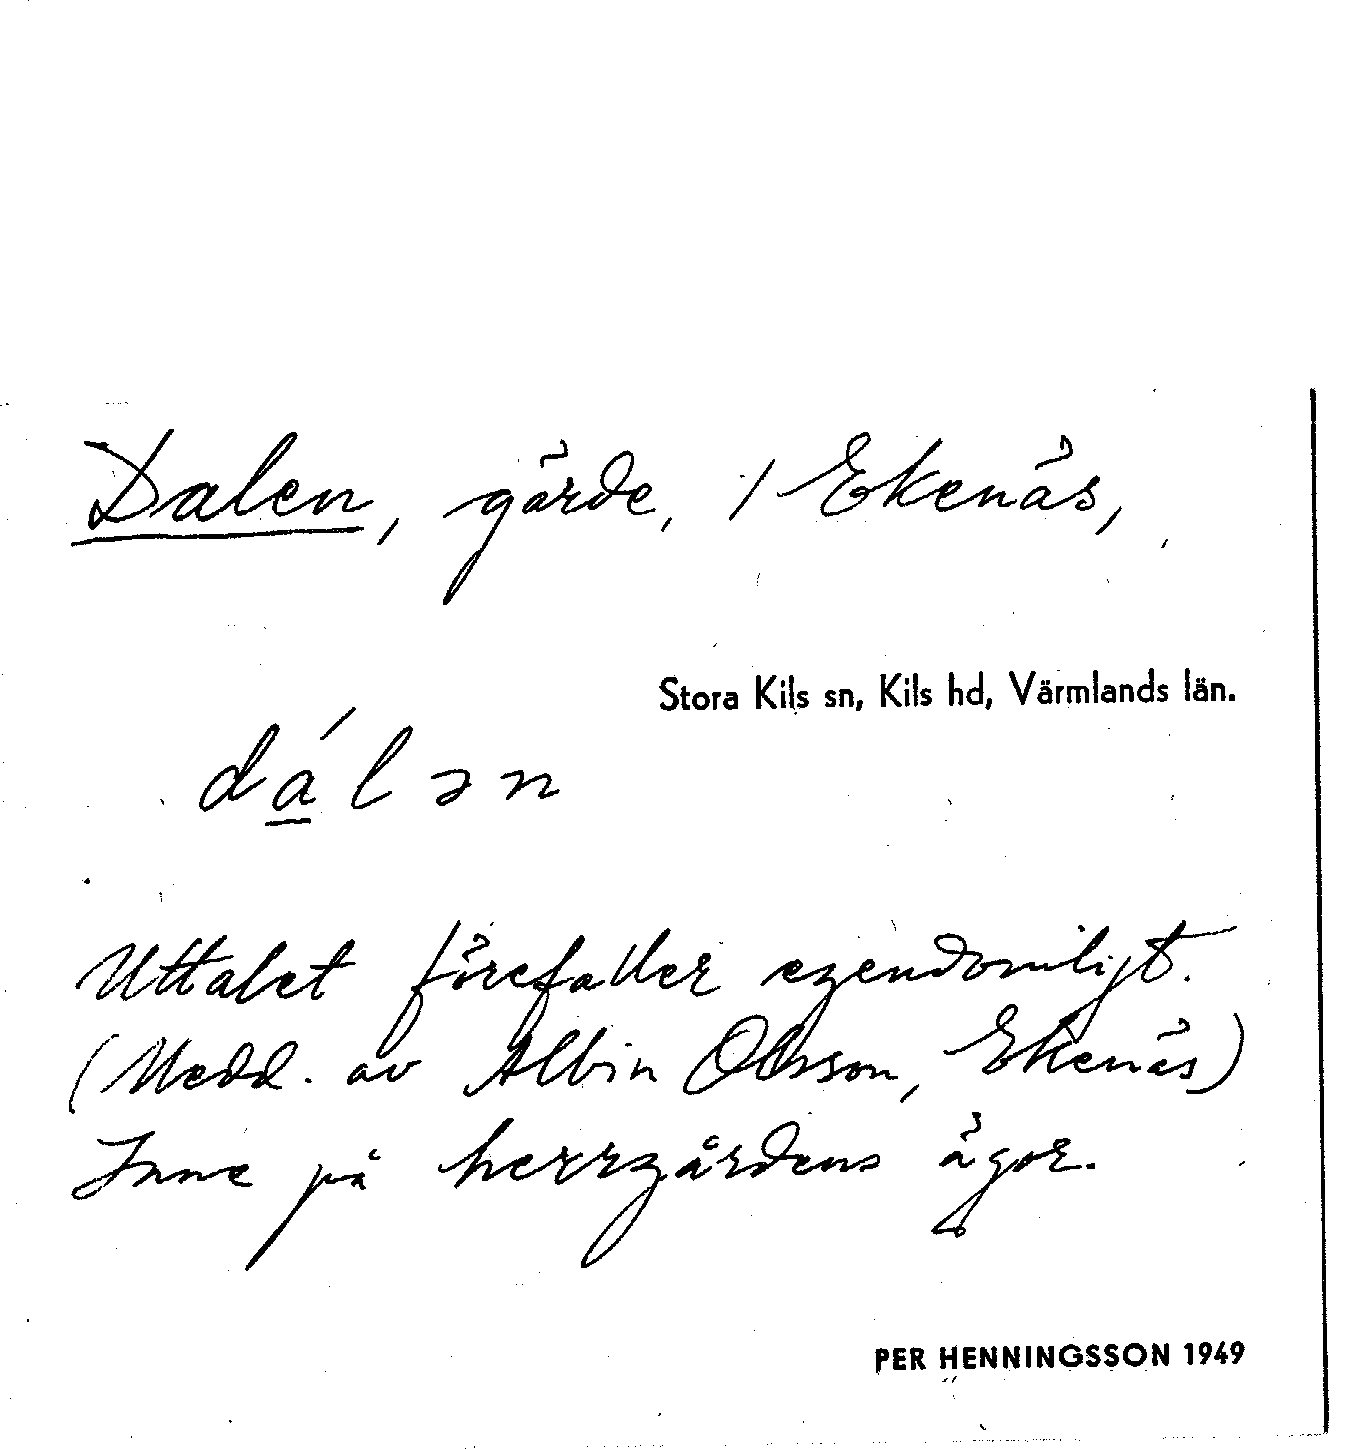 Dalen, gärde, / Ekenäs,
Stora Kils sn, Kils hd, Värmlands län.
dálən
Uttalet förefaller egendomligt.
(Medd. av Albin Olsson, Ekenäs)
Inne på herrgårdens ägor.
PER HENNINGSSON 1949